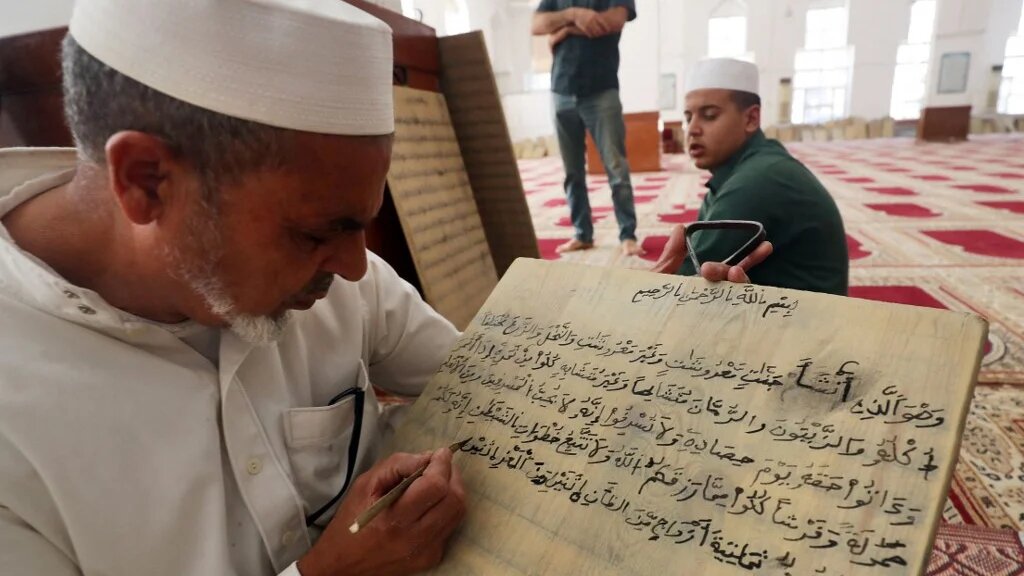 بسم الله الرحمن الرحيم
وهو الذي أنشأ جنت معروشت وغير معروشت والنخل والزرع مختلفا
اكله والزيتون والرمان متشابها وغير متشابه كلوا من ثمره إذا
وءاتوا حقه يوم حصاده ولا تسرفوا إنه لا يحب المسرفين ومن
حمولة وفرشا كلوا مما رزقكم الله ولا تتبعوا خطوات الشيطن إنه لكم
ثمنية أزواج من الضأن اثنين ومن المعز اثنين